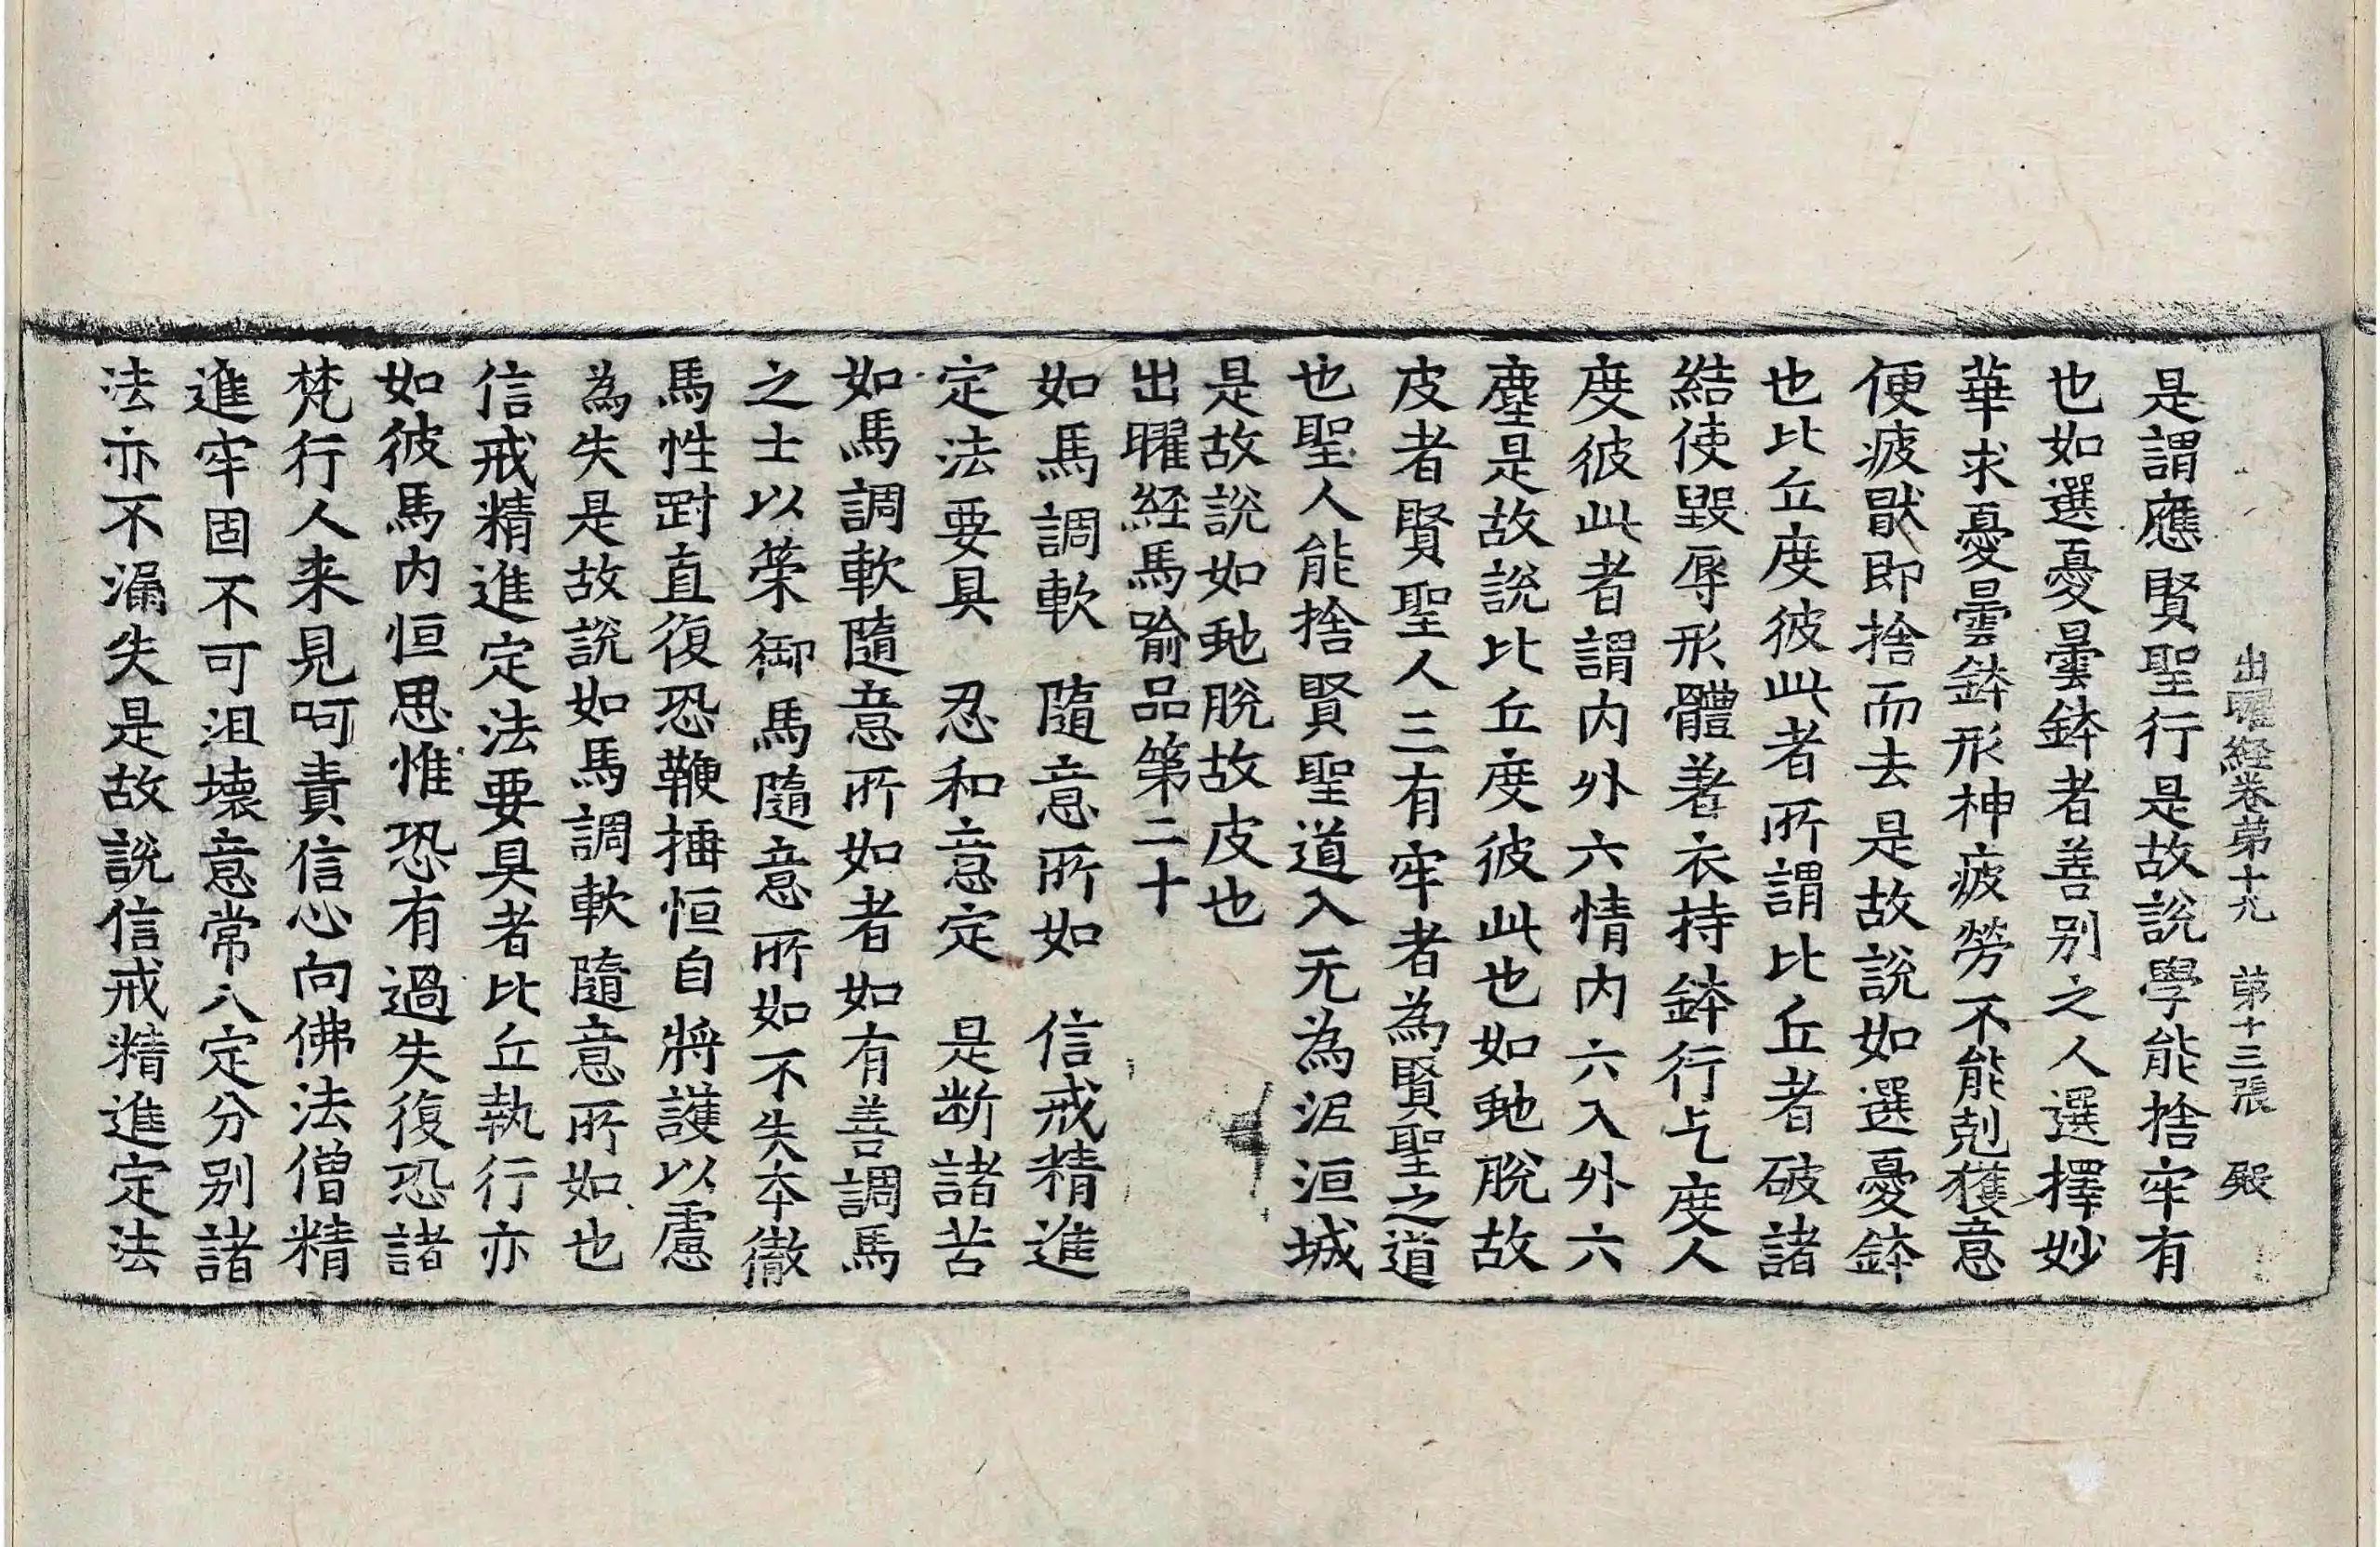 出曜経卷苐十九　苐十三張　殿
是謂應賢聖行是故說學能捨牢有
也如選憂曇鉢者善別之人選擇妙
華求憂曇鉢形神疲勞不能剋獲意
便疲猒即捨而去是故說如選憂鉢
也比丘度彼此者所謂比丘者破諸
結使毀辱形體著衣持鉢行乞度人
度彼此者謂内外六情内六入外六
塵是故說比丘度彼此也如虵脫故
皮者賢聖人三有牢者為賢聖之道
也聖人能捨賢聖道入无為泥洹城
是故說如虵脫故皮也
出曜経馬喻品第二十
如馬調軟　隨意所如　信戒精進
定法要具　忍和意定　是断諸苦
如馬調軟隨意所如者如有善調馬
之士以策御馬隨意所如不失夲徹
馬性㓰直復恐鞭捶恒自將護以慮
為失是故說如馬調軟隨意所如也
信戒精進定法要具者比丘執行亦
如彼馬内恒思惟恐有過失復恐諸
梵行人来見呵責信心向佛法僧精
進牢固不可沮壊意常入定分別諸
法亦不漏失是故說信戒精進定法